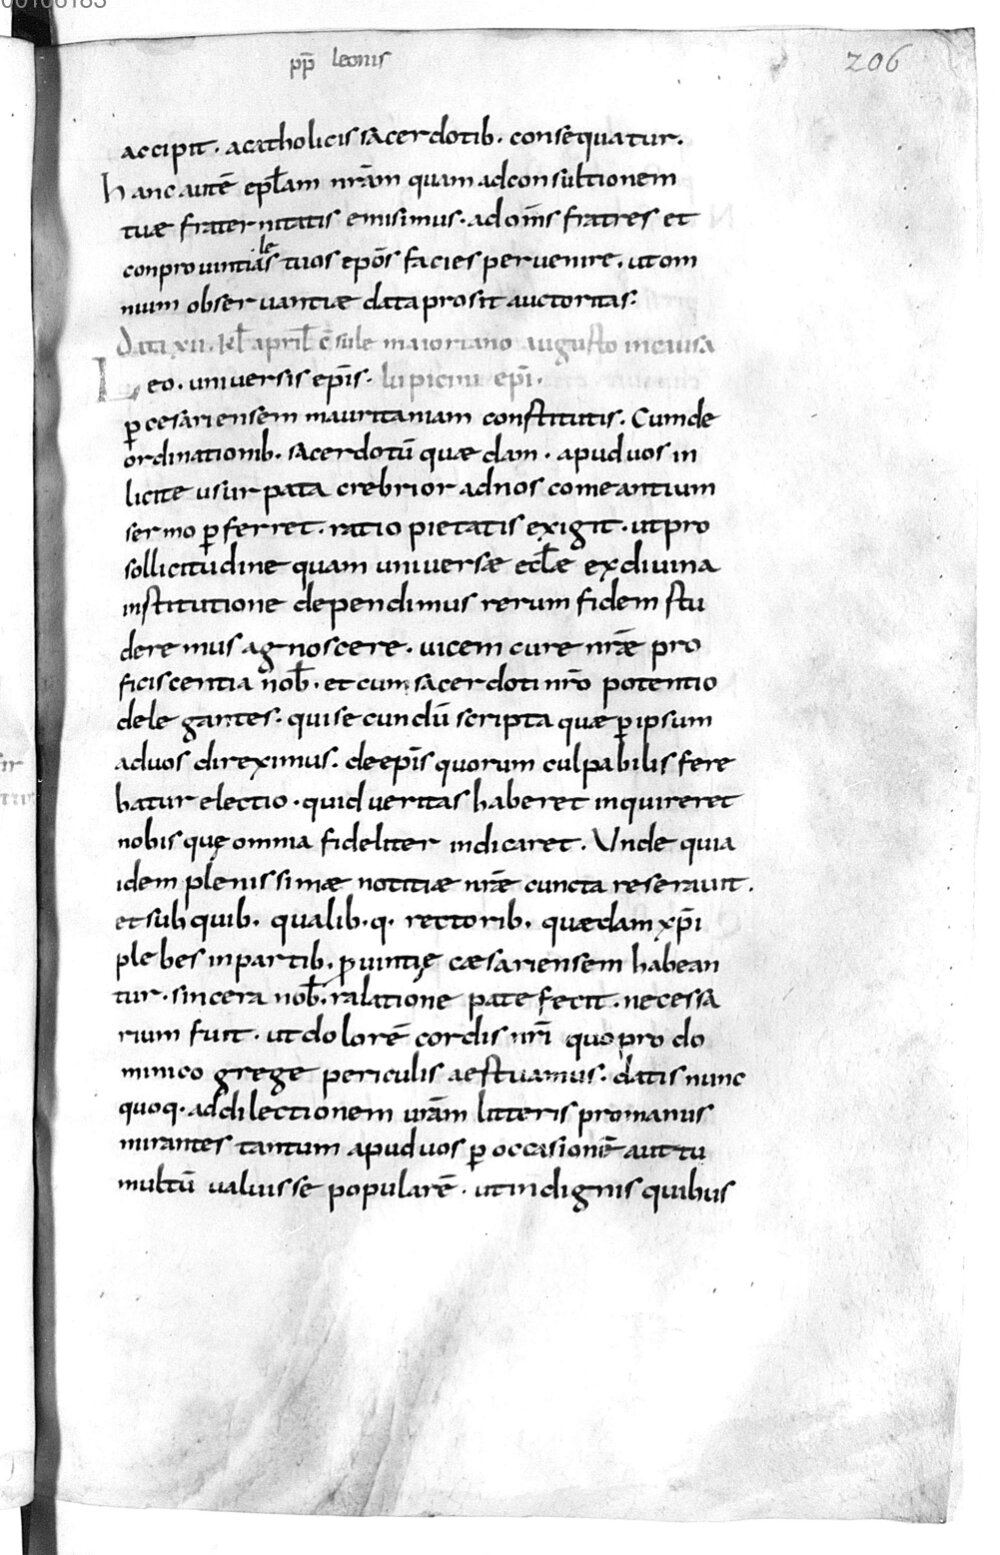 00106183
pp̄ leonis
206
accipit. acatholicis sacerdotib. consequatur.
hanc autē epłam nrām quam adconsultionem
tuæ fraternitatis emisimus. adom̄s fratres et
conprouintiales tuos epōs facies peruenire. utom
nium obseruantiæ data prosit auctoritas.
Data xii. kł april c̄sule maioriano augusto
Leo. uniuersis ep̄is. lupicini ep̄i.
ꝑ cesariensem mauritaniam constitutis. Cum de
ordinationib. sacerdotū quædam. apud uos in
licite usurpata crebrior ad nos comeantium
sermo ꝑferret. ratio pietatis exigit. ut pro
sollicitudine quam uniuersæ ecłæ ex diuina
institutione dependimus rerum fidem stu
deremus agnoscere. uicem cure nrǣ pro
ficiscentia nob̄. et cum sacerdoti nr̄o potentio
delegantes. qui secundū scripta quæ ꝑ ipsum
ad uos direximus. de ep̄is quorum culpabilis fere
batur electio. quid ueritas haberet inquireret
nobisquę omnia fideliter indicaret. Unde quia
idem plenissimæ notitiæ nrǣ cuncta reserauit.
et sub quib. qualib.q. rectorib. quædam xp̄i
plebes in partib. ꝓuintię cæsariensem habean
tur. sincera nob̄. ralatione patefecit. necessa
rium fuit. ut dolorē cordis nr̄i quo pro do
minico grege periculis aestuamus. datis nunc
quoq. ad dilectionem urām litteris promamus
mirantes tantum apud uos ꝑ occasionē aut tu
multū ualuisse popularē. ut indignis quibus